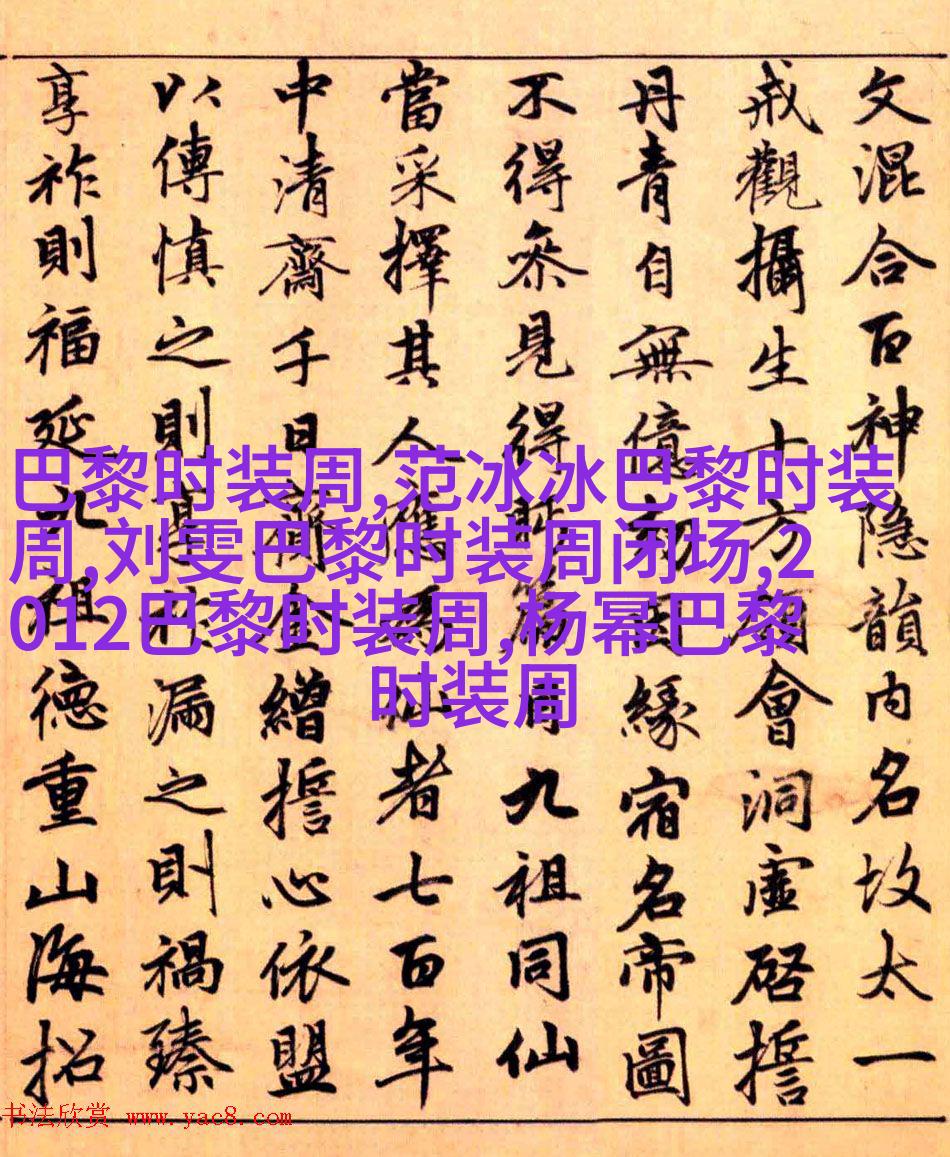 文混合百神隐韻内名故太一
戒觀攝生十方領會洞虛啓誓
丹青自無億劫因緣宿名帝圖
不得叅見得眄篇目九祖同仙
當采擇其人應爲仙者七百年
中清齋千日齎金繒誓心依盟
以傳慎之則漏之則禍臻
享祚則福延九祖德重山海招
巴黎时装周,范冰冰巴黎时装
周,刘雯巴黎时装周闭场,2
012巴黎时装周,杨幂巴黎
时装周
书法欣赏 www.yac8.com